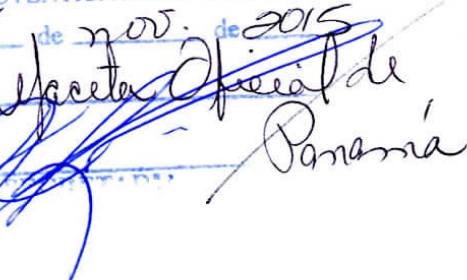 de nov. de 2015
Gaceta Oficial de
Panamá